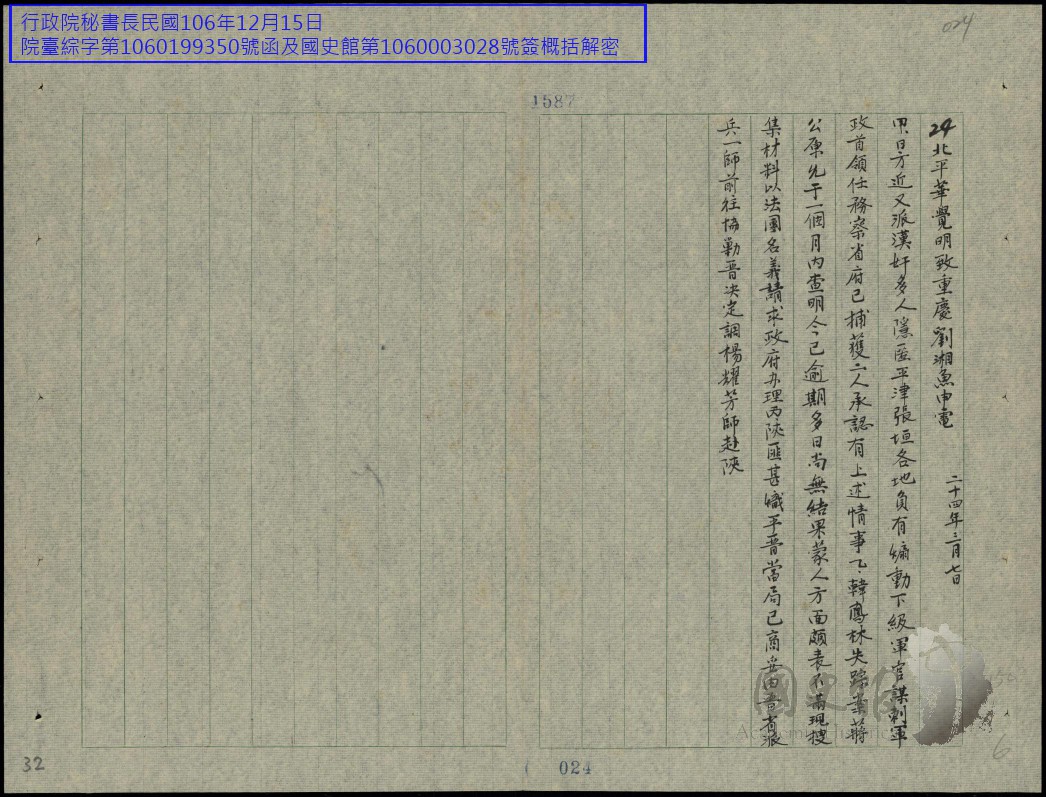 行政院秘書長民國106年12月15日
院臺綜字第1060199350號函及國史館第1060003028號簽概括解密
024
1587
24北平華覺明致重慶劉湘魚申電
二十四年三月七日
甲、日方近又派漢奸多人隱匿平津張垣各地負有煽動下級軍官謀刺軍
政首領任務察省府已捕獲二人承認有上述情事乙、韓鳳林失踪案蔣
公原允于一個月內查明今已逾期多日尚無結果蒙人方面頗表不滿現搜
集材料以法團名義請求政府办理丙陝匪甚熾平晋當局已商妥由晋省派
兵一師前往協勦晋决定調楊耀芳師赴陝
國史館
32
024
6